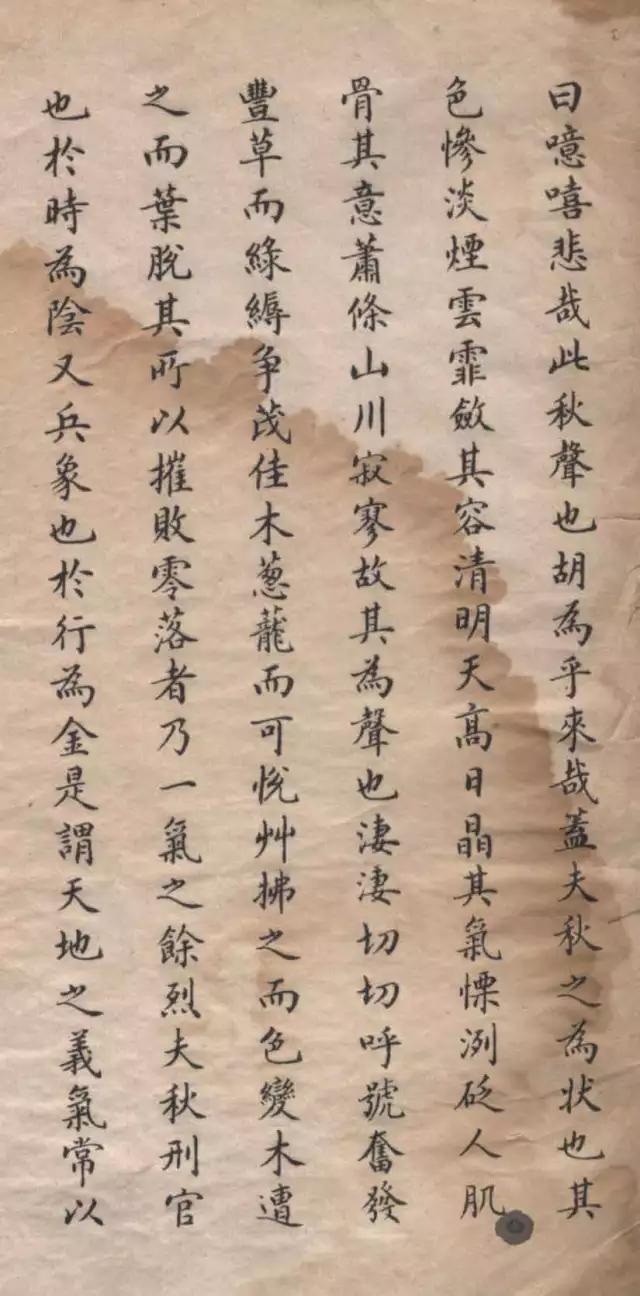 曰噫嘻悲哉此秋聲也胡為乎來哉蓋夫秋之為狀也其
色慘淡煙雲霏斂其容清明天高日晶其氣慄洌砭人肌
骨其意蕭條山川寂寥故其為聲也淒淒切切呼號奮發
豐草而綠縟争茂佳木蔥蘢而可悅艸拂之而色變木遭
之而葉脫其所以摧敗零落者乃一氣之餘烈夫秋刑官
也於時為陰又兵象也於行為金是謂天地之義氣常以